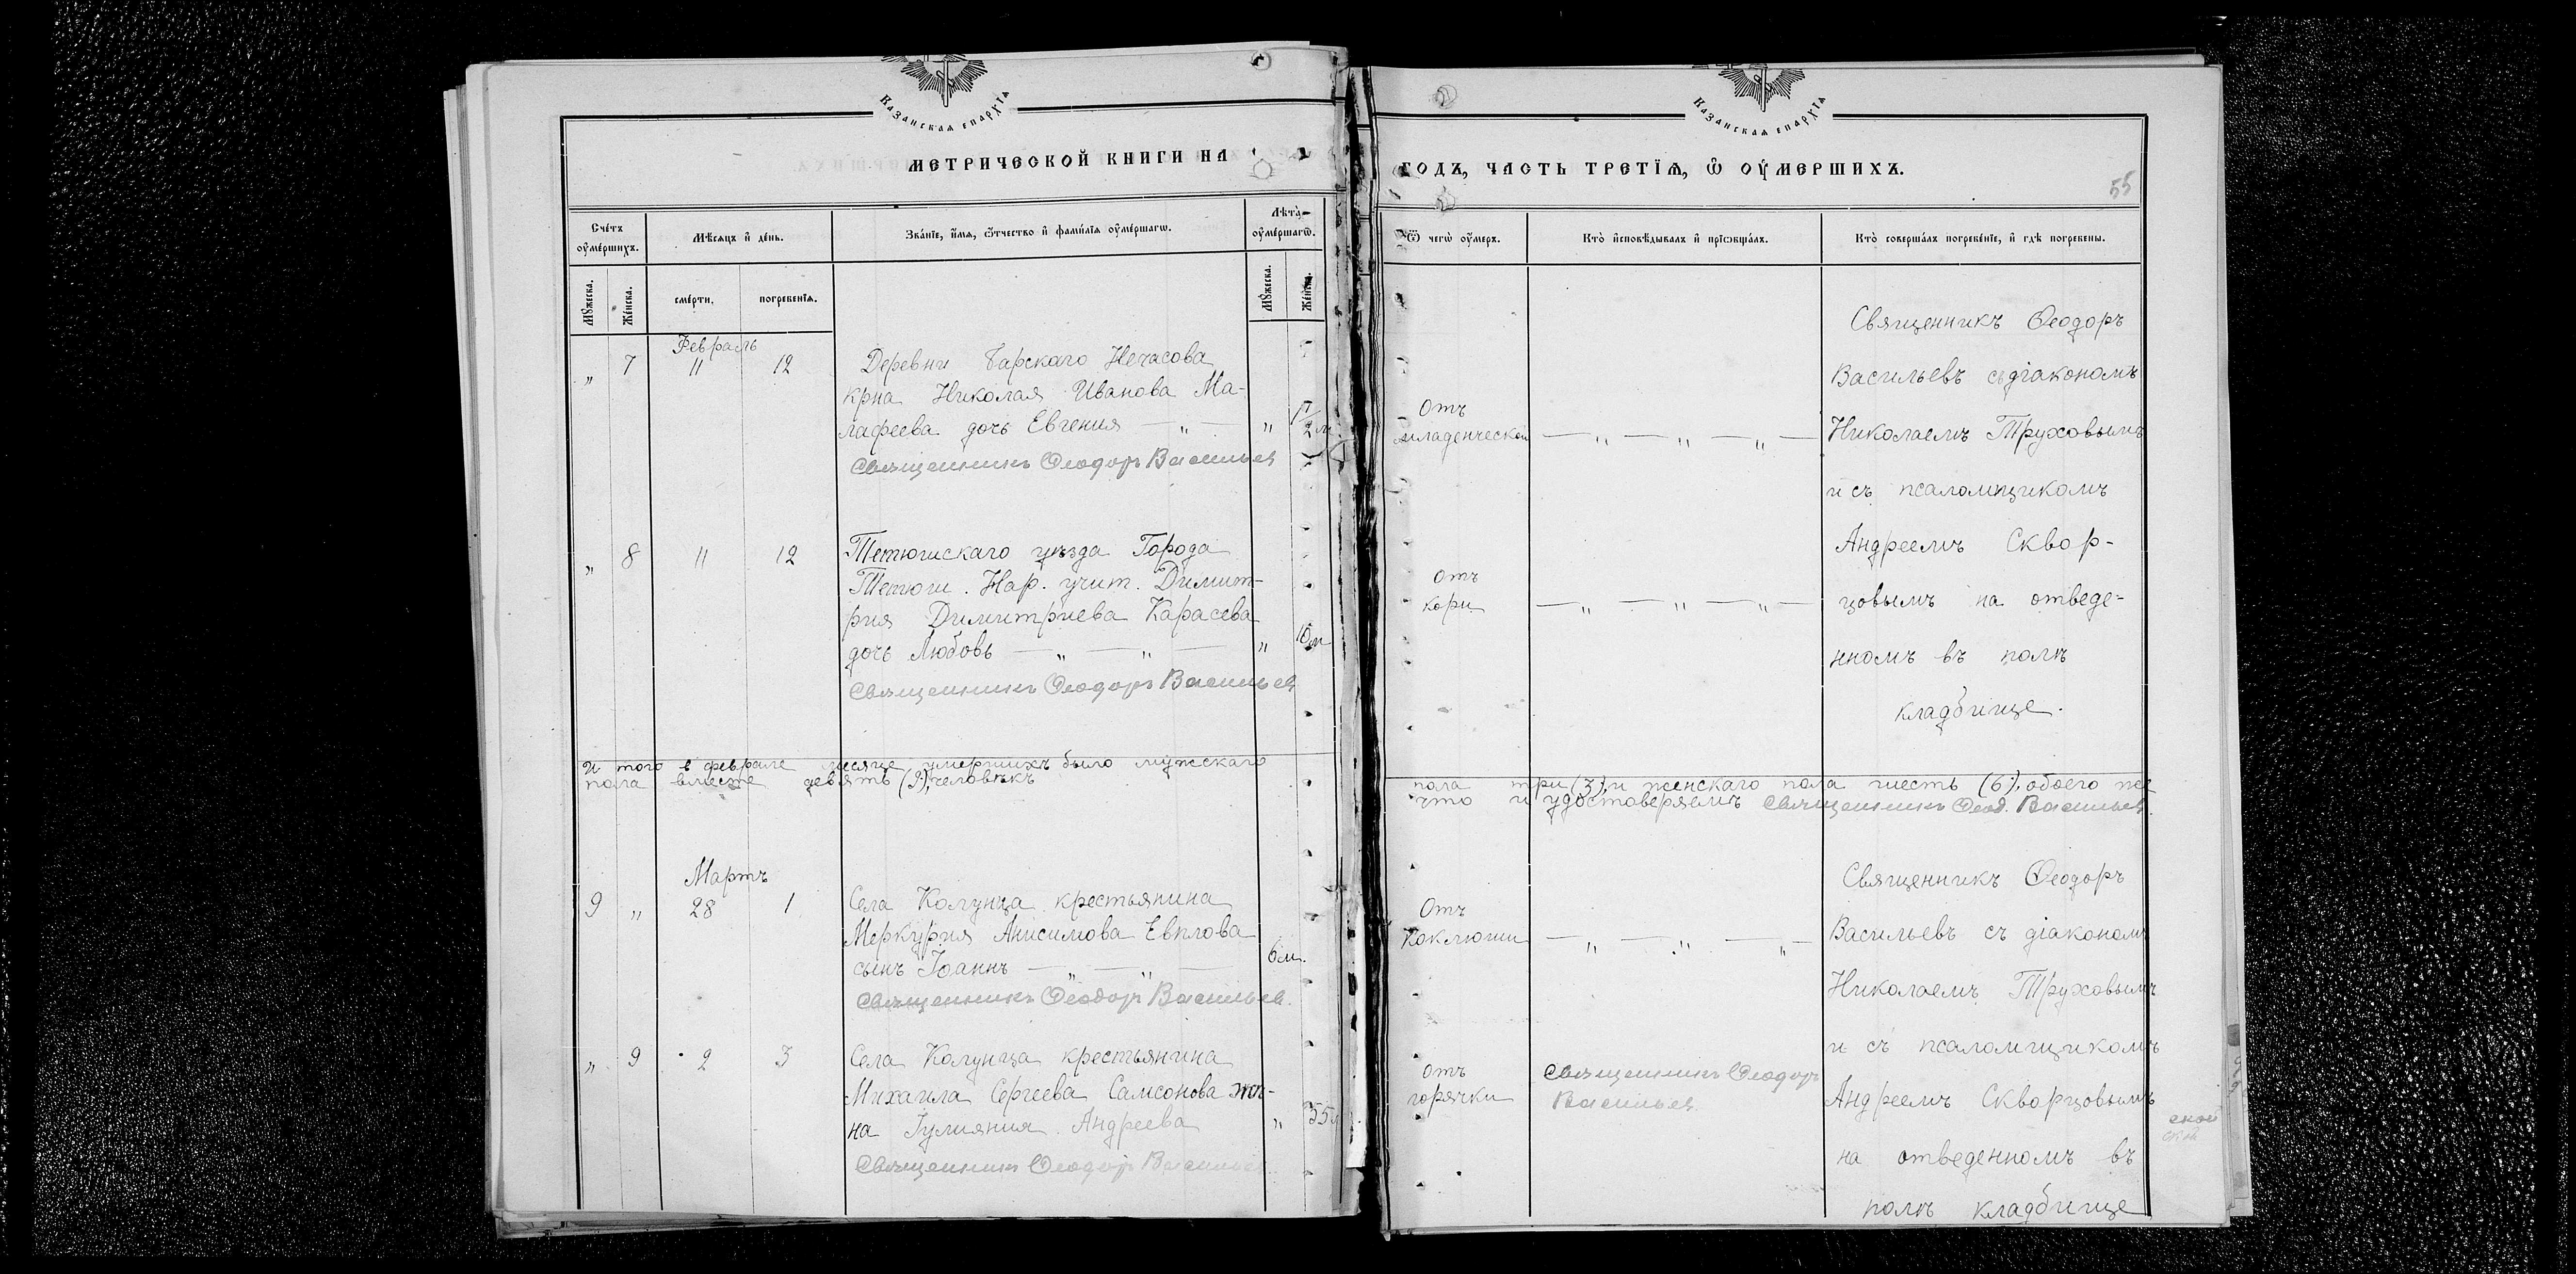 Казанская епархїа
Казанская епархїа
МЕТРИЧЕСКОЙ КНИГИ НА
ГОДЪ, ЧАСТЬ ТРЕТЇѦ, Ѽ ОУМЕРШИХЪ.
55
Счéтъ оумéршихъ.
Мѣсяцъ и дéнь.
Звáнїе, и҆́мѧ, ѻтчество и фамѝлїѧ оумéршагѡ.
Лѣтà оумéршагѡ.
Ѿ чегѡ̀ оумеръ.
Ктò и҆сповѣ́дывалъ и прїѡбщáлъ.
Ктò совершáлъ погребéнїе, и гдѣ̀ погребены.
Мꙋжеска.
Жéнска.
смéрти,
погребенїѧ.
Мꙋжеска.
Жéнска.
Февраль
„ 7 11 12 Деревни Барскаго Нечасова
крна Николая Иванова Ма-
лафеева дочь Евгения — „ — „ 1/2 м
Священникъ Ѳеодоръ Васильев
Отъ
младенческой — „ — „ — „ —
Священникъ Ѳеодоръ
Васильевъ съ діакономъ
Николаемъ Труховымъ
и съ псаломщикомъ
Андреемъ Сквор-
цовымъ на отведе-
нномъ въ полѣ
кладбище.
„ 8 11 12 Тетюшскаго уѣзда Города
Тетюши. Нар. учит. Димит-
рия Димитриева Карасева
дочь Любовь — „ — „ — „ 10 м
Священникъ Ѳеодоръ Васильев
отъ
кори — „ — „ — „ —
И того в феврале месяце умершихъ было мужскаго
пола три (3), и женскаго пола шесть (6), обоего
пола вместе девять (9), человѣкъ
что и удостоверяемъ Священникъ Ѳеод. Васильев.
Мартъ
9 „ 28 1 Села Колунца крестьянина
Меркурия Анисимова Евплова
сынъ Іоаннъ — „ — „ — 6 м.
Священникъ Ѳеодоръ Васильев.
Отъ
коклюши — „ — „ — „ —
Священникъ Ѳеодоръ
Васильевъ съ діакономъ
Николаемъ Труховымъ
и съ псаломщикомъ
Андреемъ Скворцовымъ
на отведенномъ въ
полѣ кладбище
„ 9 2 3 Села Колунца крестьянина
Михаила Сергеева Самсонова же-
на Іулияния Андреева „ 55
Священникъ Ѳеодоръ Васильев.
отъ
горячки
Священникъ Ѳеодоръ
Васильев.